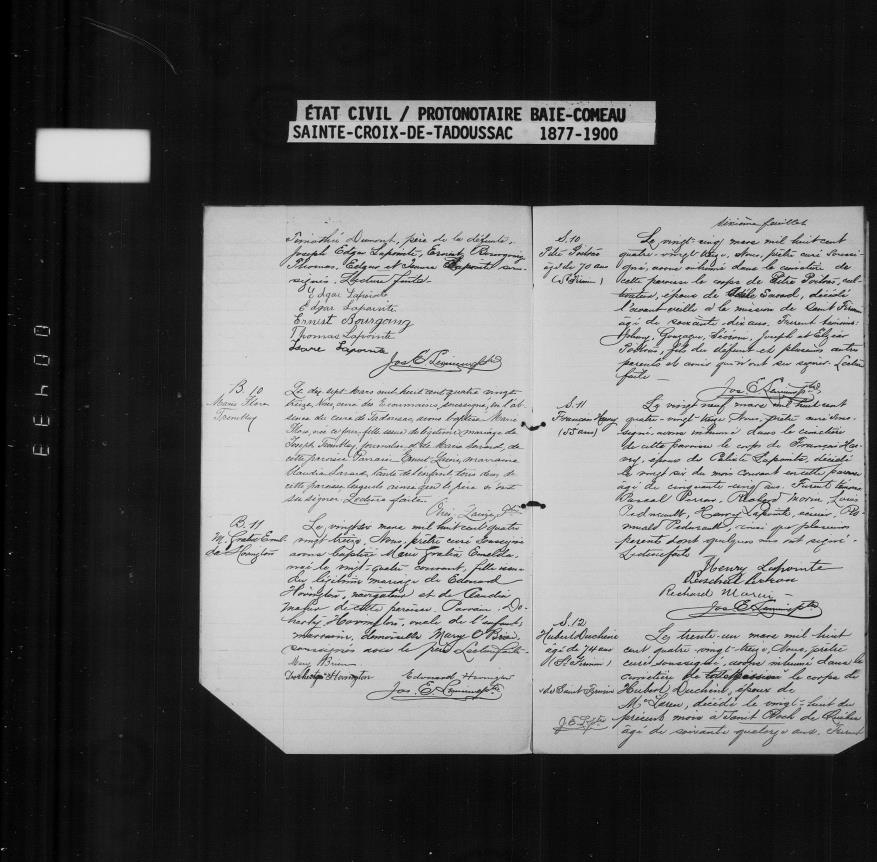 ÉTAT CIVIL / PROTONOTAIRE BAIE-COMEAU
SAINTE-CROIX-DE-TADOUSSAC 1877-1900
00433
Timothé Dumont, père de la défunte,
Joseph Edgar Lapointe, Ernest Bourgoing
Thomas, Edgar et Lapointe sous
signés. Lecture faite
Edgar Lapointe
Edgar Lapointe
Ernest Bourgoing
Thomas Lapointe
Lapointe
Jos. E.
B. 10
Marie Flora
Tremblay
Le dix sept mars mil huit cent quatre vingt
treize, Nous, curé des Escoumains, soussigné, en l'ab
sence du curé de Tadoussac, avons baptisé Marie
Flora, née ce jour, fille issue du légitime mariage de
Joseph Tremblay, journalier, et de Savard, de
cette paroisse. Parrain marraine
Savard, tante de l'enfant tous deux de
cette paroisse, lesquels ainsi que le père n'ont
su signer. Lecture faite.
B. 11
M.
Hovington
Le vingt six mars mil huit cent quatre
vingt treize, Nous, prêtre curé soussigné
avons baptisé Marie
née le vingt quatre courant, fille issue
du légitime mariage de Edouard
Hovington, navigateur et de
de cette paroisse. Parrain Do-
herty Hovington, oncle de l'enfant;
marraine, demoiselle Mary O'Brien,
soussignés avec le père Lecture faite
Mary
Hovington Edouard Hovington
Jos. E.
sixième feuillet
S. 10
Poitras
âgé de 70 ans
(St Firmin)
Le vingt-cinq mars mil huit cent
quatre-vingt treize, Nous, prêtre curé soussi-
gné, avons inhumé dans le cimetière de
cette paroisse le corps de Poitras, cul-
tivateur, époux de Savard, décédé
l'avant-veille à la mission de Saint Firmin
âgé de soixante dix ans. Furent témoins:
Johnny, Gonzague, Siméon, Joseph et Elzéar
Poitras, fils du défunt et plusieurs autres
parents et amis qui n'ont su signer. Lecture
faite —
Jos. E.
S. 11
François Henry
(55 ans)
Le vingt neuf mars mil huit cent
quatre-vingt treize Nous, prêtre curé sous-
signé, avons inhumé dans le cimetière
de cette paroisse le corps de François Hen-
ry, époux de Lapointe, décédé
le vingt six du mois courant en cette paroisse
âgé de cinquante cinq ans. Furent témoins
Pascal Richard Morin, Louis
Henry Lapointe,
ainsi que plusieurs
parents dont quelques uns ont signé.
Lecture faite
Henry Lapointe
Richard Morin
Jos. E.
S. 12
Hubert Duchêne
âgé de 74 ans
(St Firmin)
de Saint Firmin
Le trente-un mars mil huit
cent quatre-vingt-treize, Nous, prêtre
curé soussigné, avons inhumé dans le
cimetière le corps de
Hubert Duchêne, époux de
décédé le vingt-huit du
présent mois à Saint Roch de Québec
âgé de soixante quatorze ans. Furent